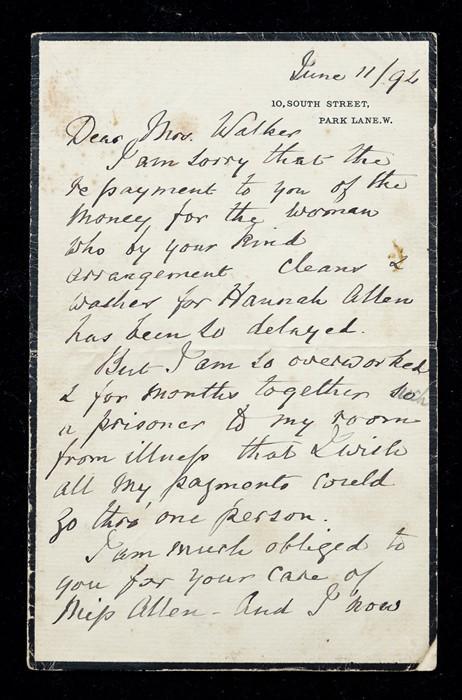 June 11/92
10, SOUTH STREET,
PARK LANE. W.
Dear Mrs. Walker
I am sorry that the
repayment to you of the
money for the woman
who by your kind
arrangement cleans &
washes for Hannah Allen
has been so delayed.
But I am so overworked
& for months together so
a prisoner to my room
from illness that I wish
all my payments could
go thro' one person.
I am much obliged to
you for your care of
Miss Allen - And I now